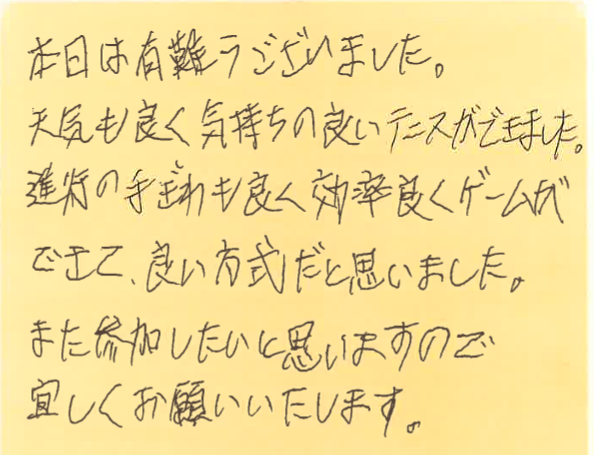 本日は有難うございました。
天気も良く気持ちの良いテニスができました。
進行の手ぎわも良く効率良くゲームが
できて、良い方式だと思いました。
また参加したいと思いますので
宜しくお願いいたします。